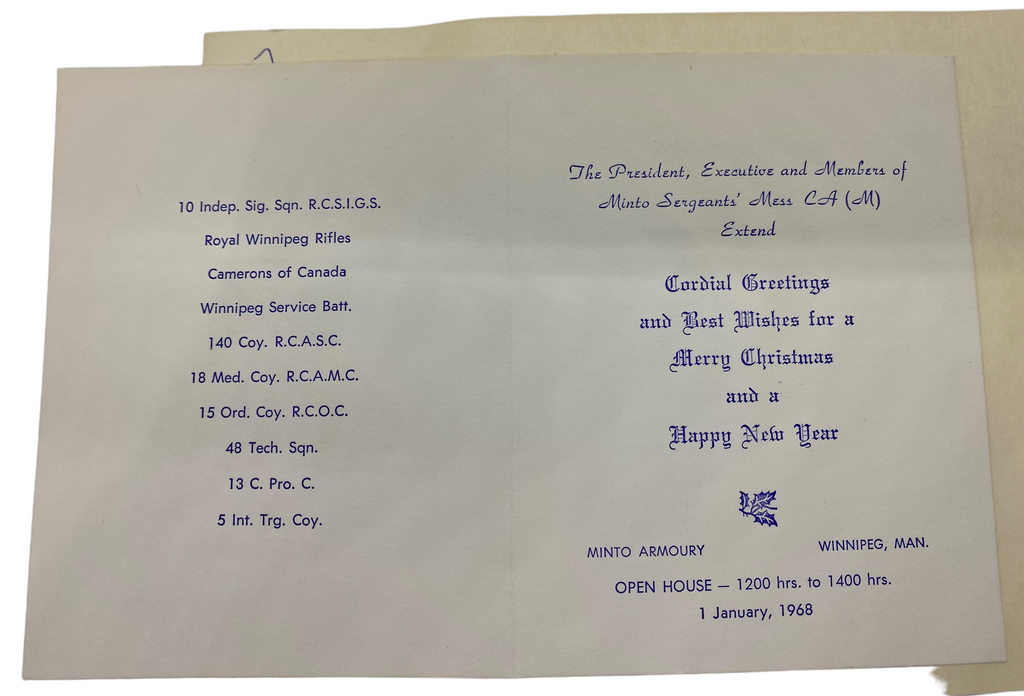 10 Indep. Sig. Sqn. R.C.S.I.G.S.
Royal Winnipeg Rifles
Camerons of Canada
Winnipeg Service Batt.
140 Coy. R.C.A.S.C.
18 Med. Coy. R.C.A.M.C.
15 Ord. Coy. R.C.O.C.
48 Tech. Sqn.
13 C. Pro. C.
5 Int. Trg. Coy.
The President, Executive and Members of
Minto Sergeants' Mess CA (M)
Extend
Cordial Greetings
and Best Wishes for a
Merry Christmas
and a
Happy New Year
MINTO ARMOURY WINNIPEG, MAN.
OPEN HOUSE — 1200 hrs. to 1400 hrs.
1 January, 1968